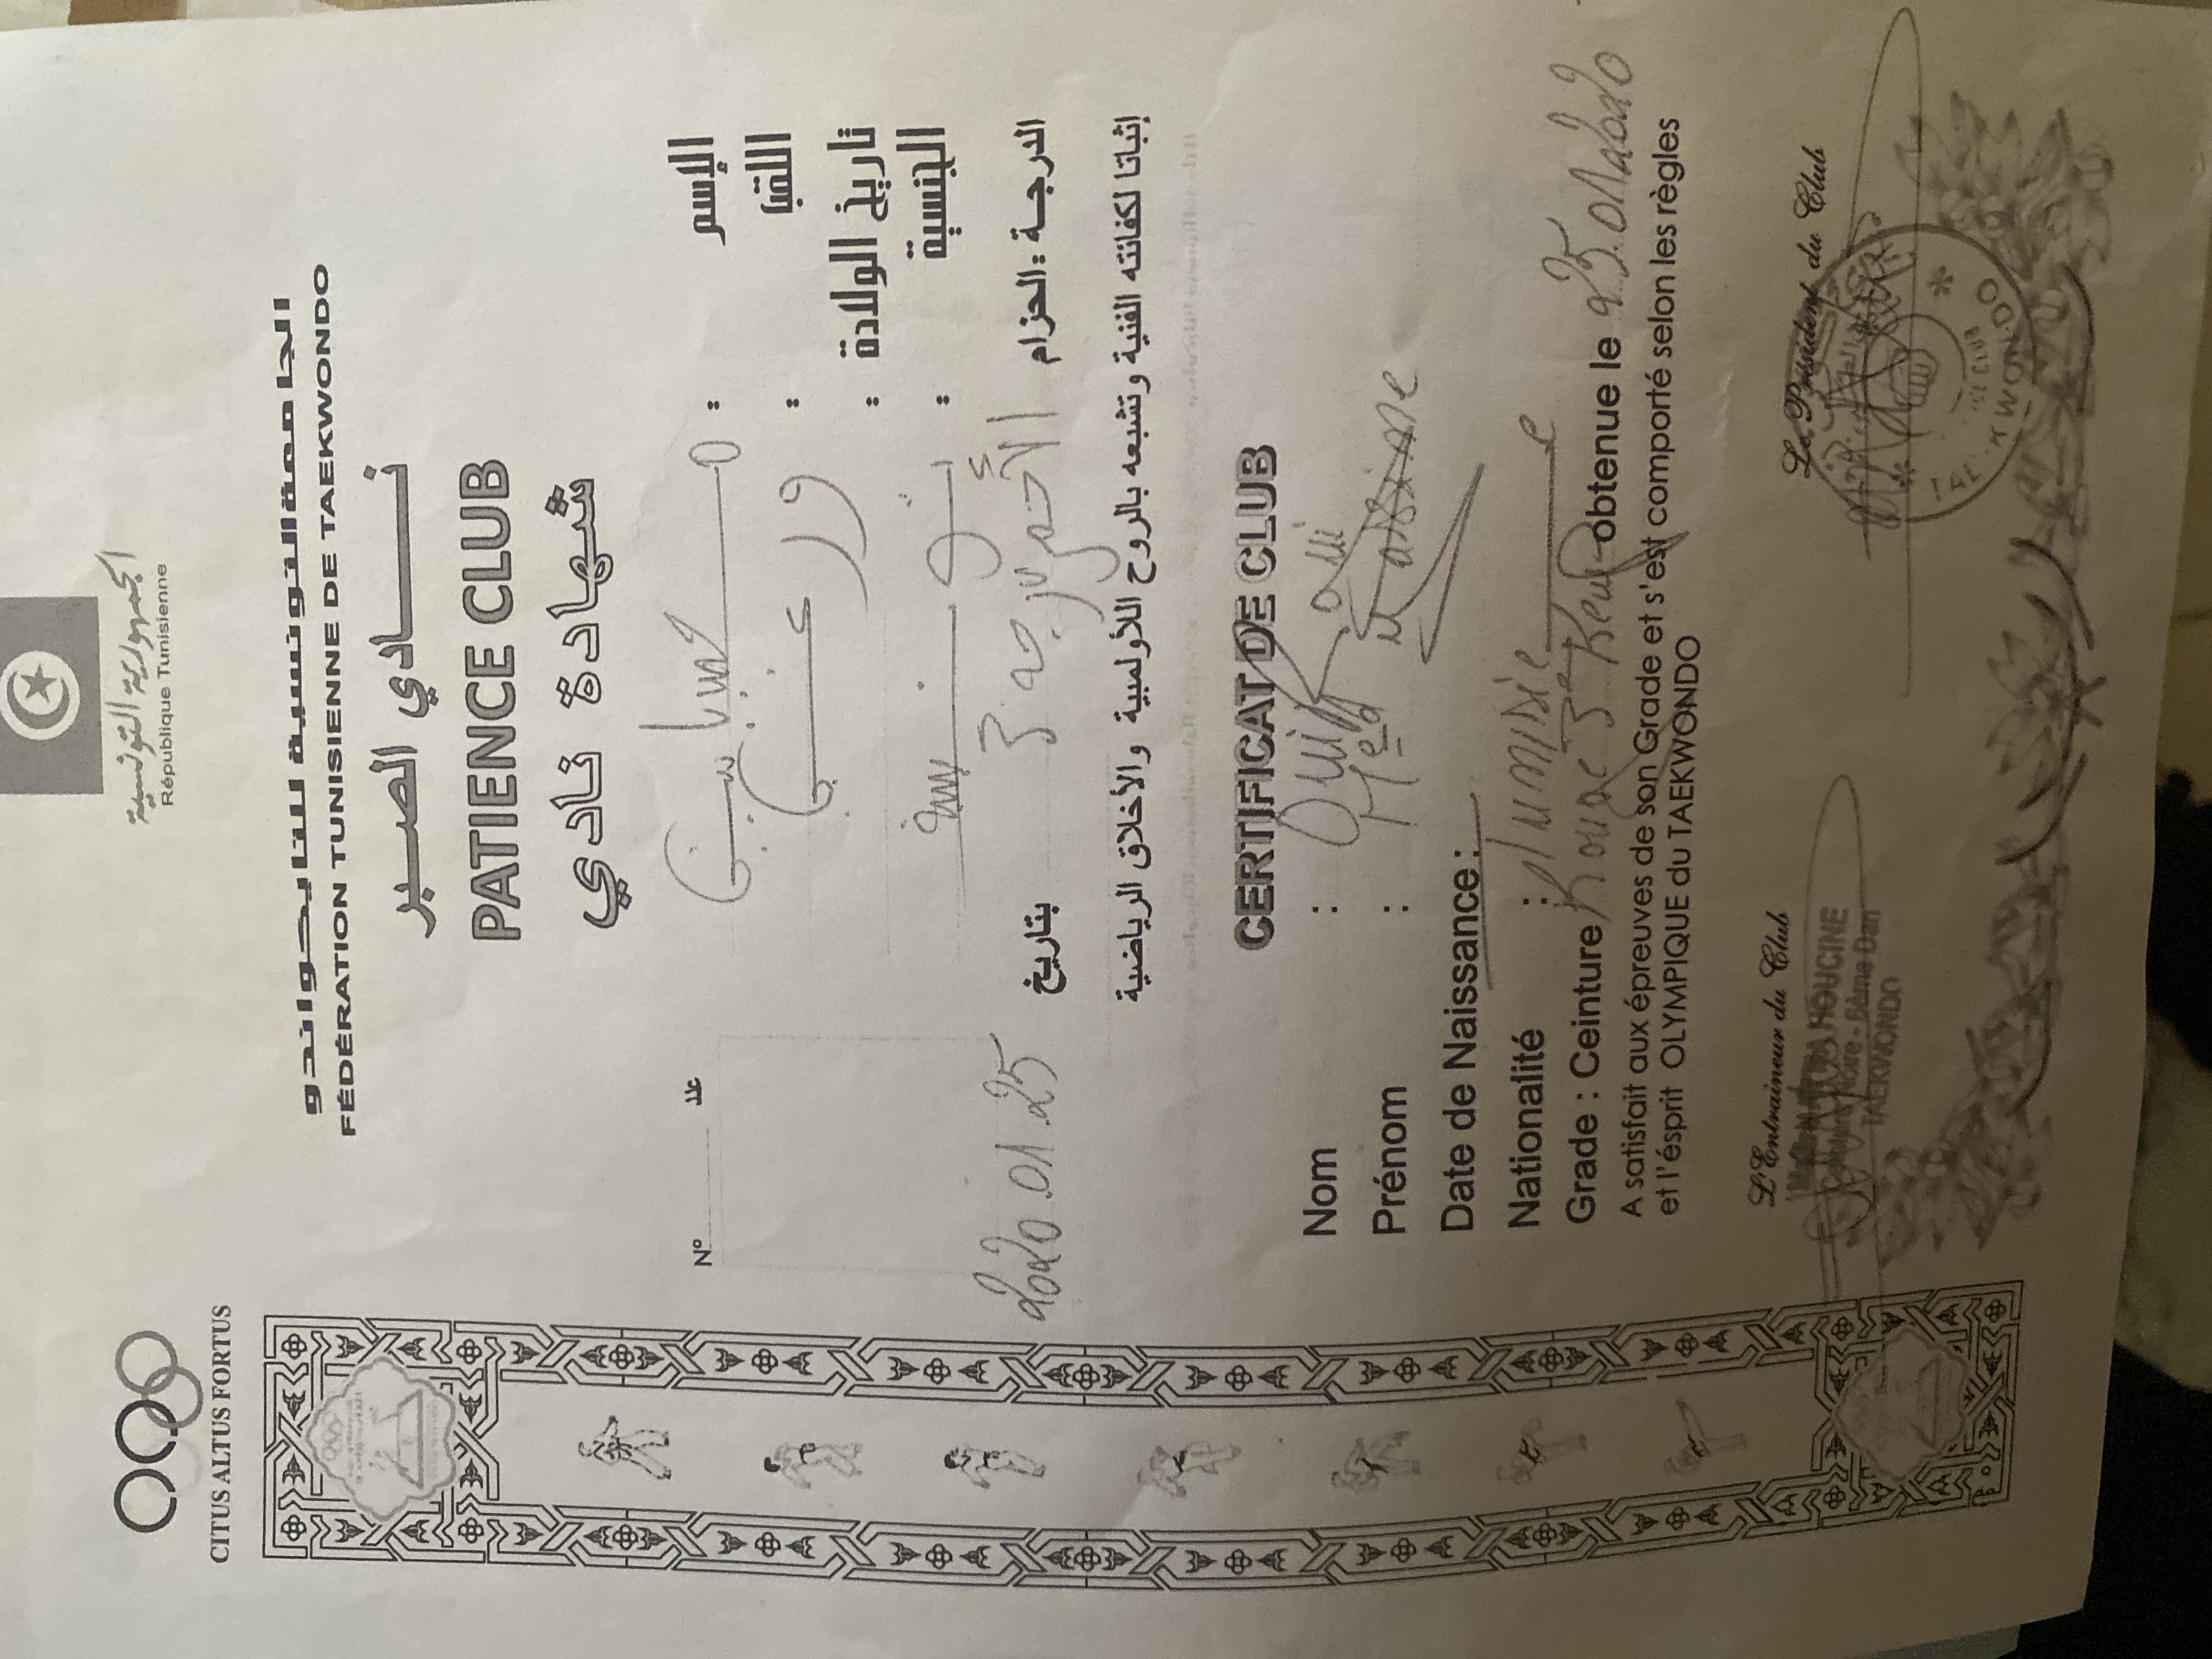 الجمهورية التونسية
République Tunisienne
CITUS ALTUS FORTUS
الجامعة التونسية للتايكواندو
FÉDÉRATION TUNISIENNE DE TAEKWONDO
نادي الصبر
PATIENCE CLUB
شهادة نادي
N° عدد
الإسم :
اللقب :
تاريخ الولادة :
الجنسية : تونسية
الدرجة : الحزام الأحمر درجة 3 بتاريخ 2020.01.25
إثباتا لكفائته الفنية وتشبعه بالروح اللأولمبية والأخلاق الرياضية
CERTIFICAT DE CLUB
Nom :
Prénom : Med Yassine
Date de Naissance :
Nationalité : Tunisie
Grade : Ceinture Rouge 3e Keup obtenue le 25.01.2020
A satisfait aux épreuves de son Grade et s'est comporté selon les règles
et l'ésprit OLYMPIQUE du TAEKWONDO
L'Entraineur du Club
Le Président du Club
HOUCINE
Noire - 6ème Dan
TAEKWONDO
TAE.KWON.DO